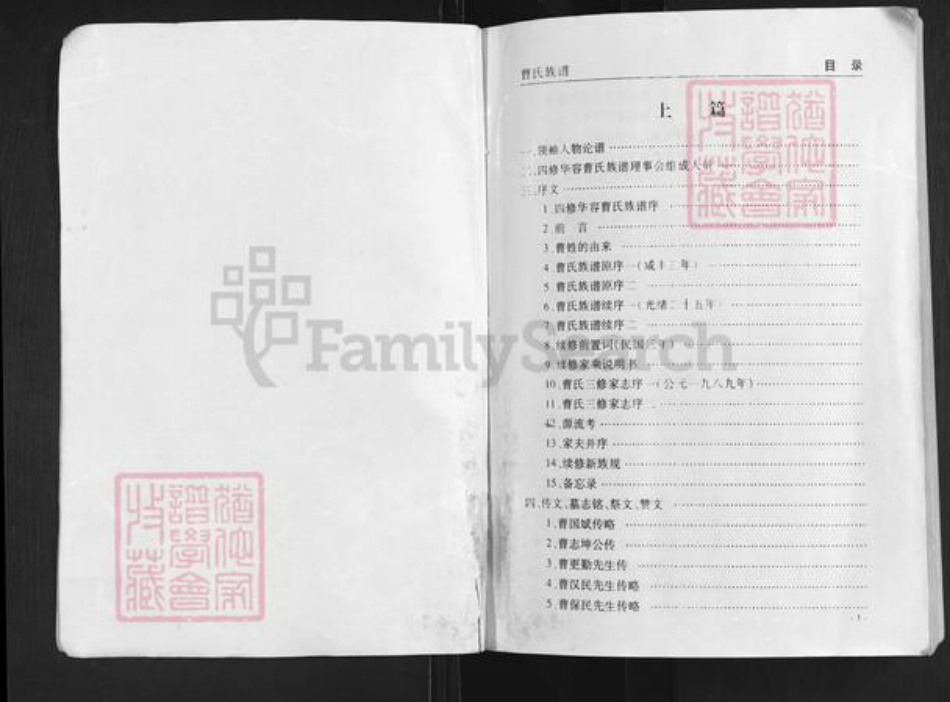 曹氏族谱 目 录
上 篇
一.领袖人物论谱
二.四修华容曹氏族谱理事会组成人员
三.序文
1.四修华容曹氏族谱序
2.前 言
3.曹姓的由来
4.曹氏族谱原序一(咸丰三年)
5.曹氏族谱原序二
6.曹氏族谱续序一(光绪二十五年)
7.曹氏族谱续序二
8.续修前置词(民国三年)
9.续修家乘说明书
10.曹氏三修家志序一(公元一九八九年)
11.曹氏三修家志序二
12.源流考
13.家夫并序
14.续修新族规
15.备忘录
四.传文、墓志铭、祭文、赞文
1.曹国斌传略
2.曹志坤公传
3.曹更勤先生传
4.曹汉民先生传略
5.曹保民先生传略
FamilySearch
譜學會
收藏
譜學會
收藏